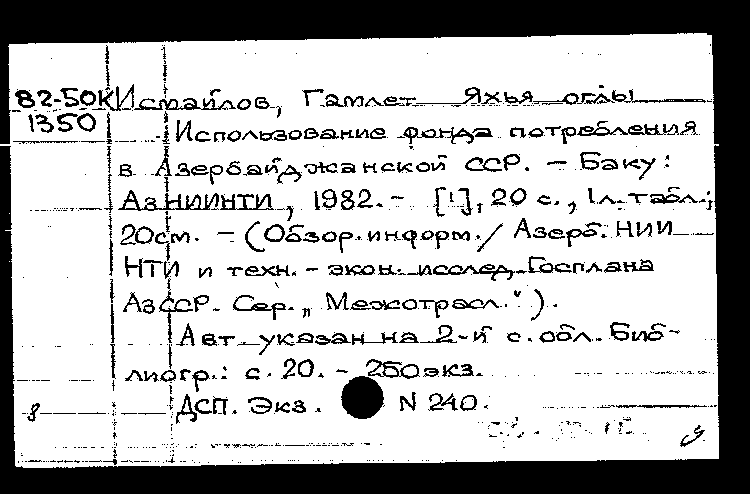 82-50К Исмайлов, Гамлет Яхья оглы
1350
Использование фонда потребления
в Азербайджанской ССР. - Баку:
АзНИИНТИ, 1982. - [1], 20 с., 1 л. табл.;
20 см. - (Обзор. информ. / Азерб. НИИ
НТИ и техн.-экон. исслед. Госплана
АзССР. Сер. „Межотрасл.").
Авт указан на 2-й с. обл. Биб-
лиогр.: с. 20. - 250 экз.
8 ДСП. Экз. N 240.